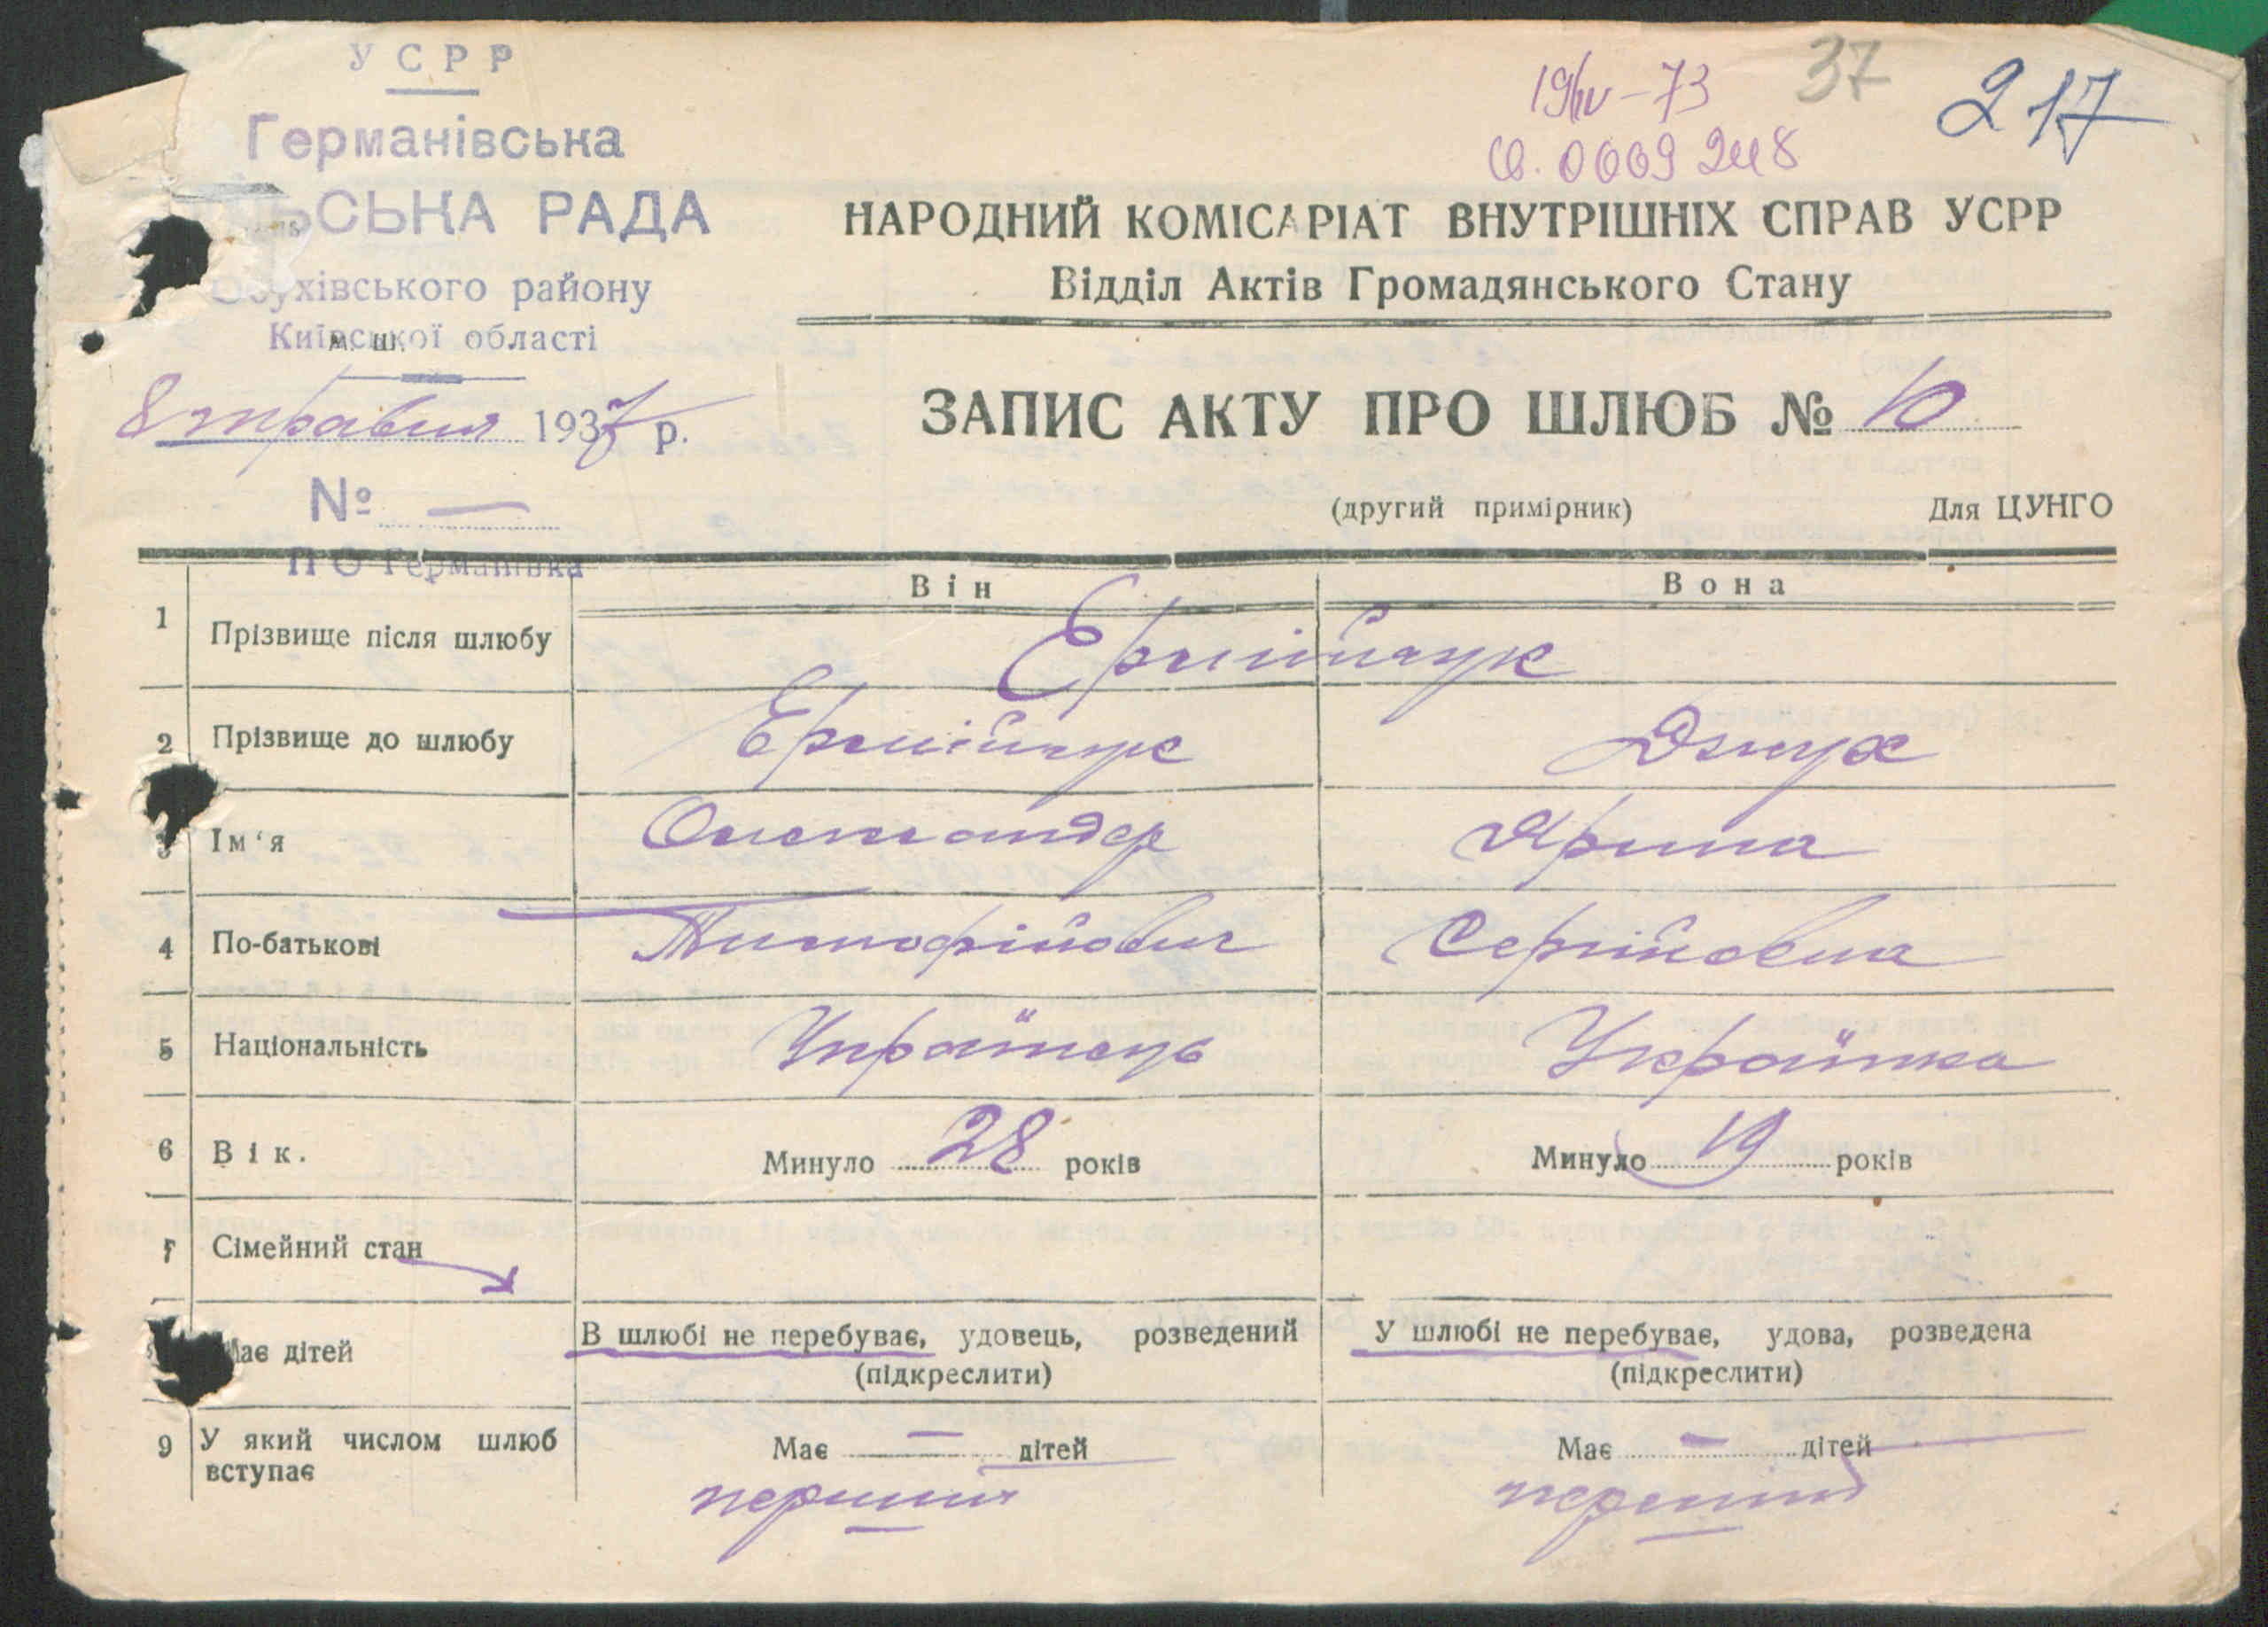 УСРР
Германівська
ЬСЬКА РАДА
Обухівського району
Київської області
м. ш.
8 травня 1937 р.
№ —
ПО Германівка
19/IV–73
37
217
Св. 0009248
НАРОДНИЙ КОМІСАРІАТ ВНУТРІШНІХ СПРАВ УСРР
Відділ Актів Громадянського Стану
ЗАПИС АКТУ ПРО ШЛЮБ № 10
(другий примірник) Для ЦУНГО
Він Вона
1 Прізвище після шлюбу Єрмійчук
2 Прізвище до шлюбу Єрмійчук
3 Ім‘я Олександер Ярина
4 По-батькові Тимофійович Сергійовна
5 Національність Українець Українка
6 Вік. Минуло 28 років Минуло 19 років
7 Сімейний стан
Має дітей В шлюбі не перебуває, удовець, розведений У шлюбі не перебуває, удова, розведена
(підкреслити) (підкреслити)
9 У який числом шлюб вступає Має — дітей Має — дітей
перший перший